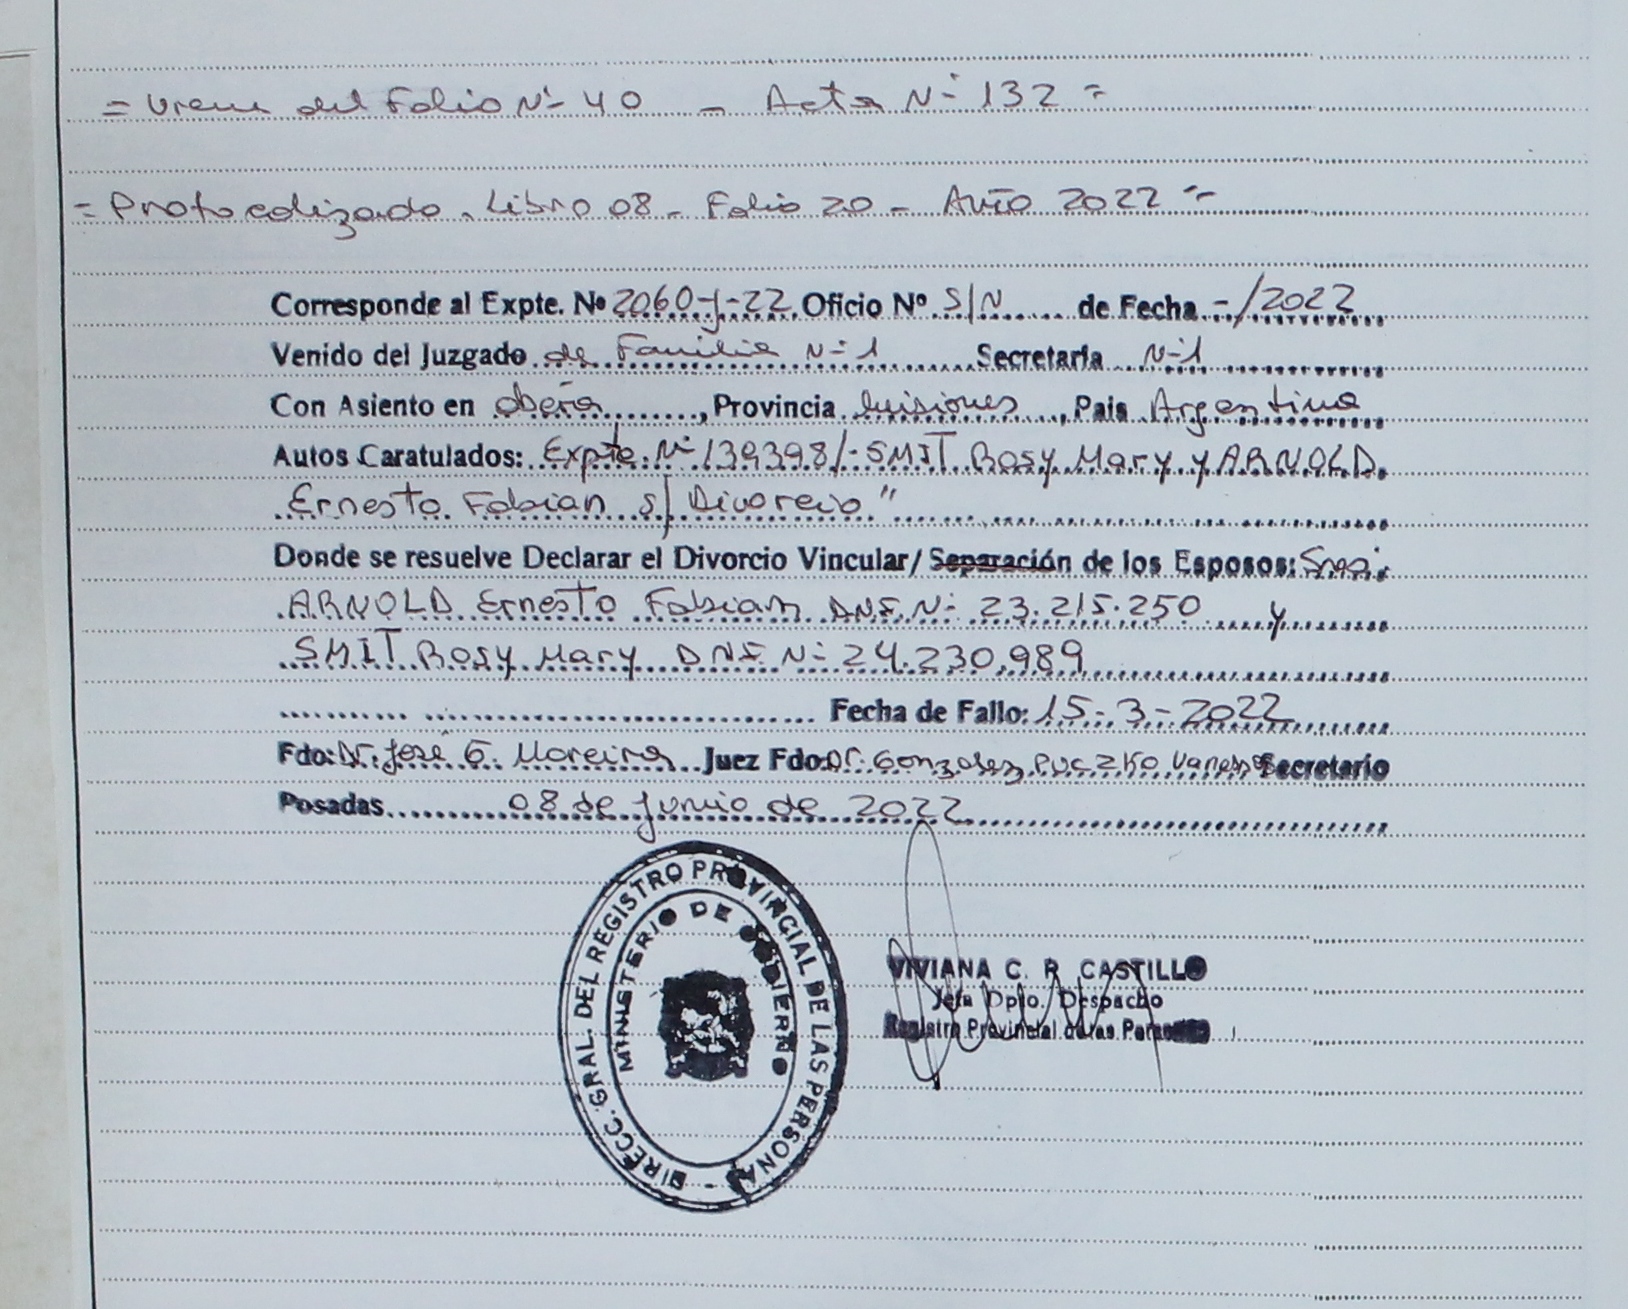 = Viene del Folio Nº 40 - Acta Nº 132 =
= Protocolizado. Libro 08 - Folio 20 - Año 2022 =
Corresponde al Expte. Nº 2060-J-22. Oficio Nº S/N de Fecha -/2022
Venido del Juzgado de Familia Nº 1 Secretaría Nº 1
Con Asiento en Oberá, Provincia Misiones, Pais Argentina
Autos Caratulados: Expte. Nº 139398/- SMIT Rosy Mary y ARNOLD
Ernesto Fabian s/ Divorcio"
Donde se resuelve Declarar el Divorcio Vincular/ Separación de los Esposos:
ARNOLD Ernesto Fabian DNI. Nº 23.215.250 y
SMIT Rosy Mary DNI Nº 24.230.989
Fecha de Fallo: 15-3-2022
Fdo: Dr. José G. Moreira Juez Fdo: Dr. Gonzalez Vanessa Secretario
Posadas 08 de Junio de 2022
DIRECC. GRAL. DEL REGISTRO PROVINCIAL DE LAS PERSONAS -
MINISTERIO DE GOBIERNO
VIVIANA C. R. CASTILLO
Jefa Dpto. Despacho
Registro Provincial de las Personas